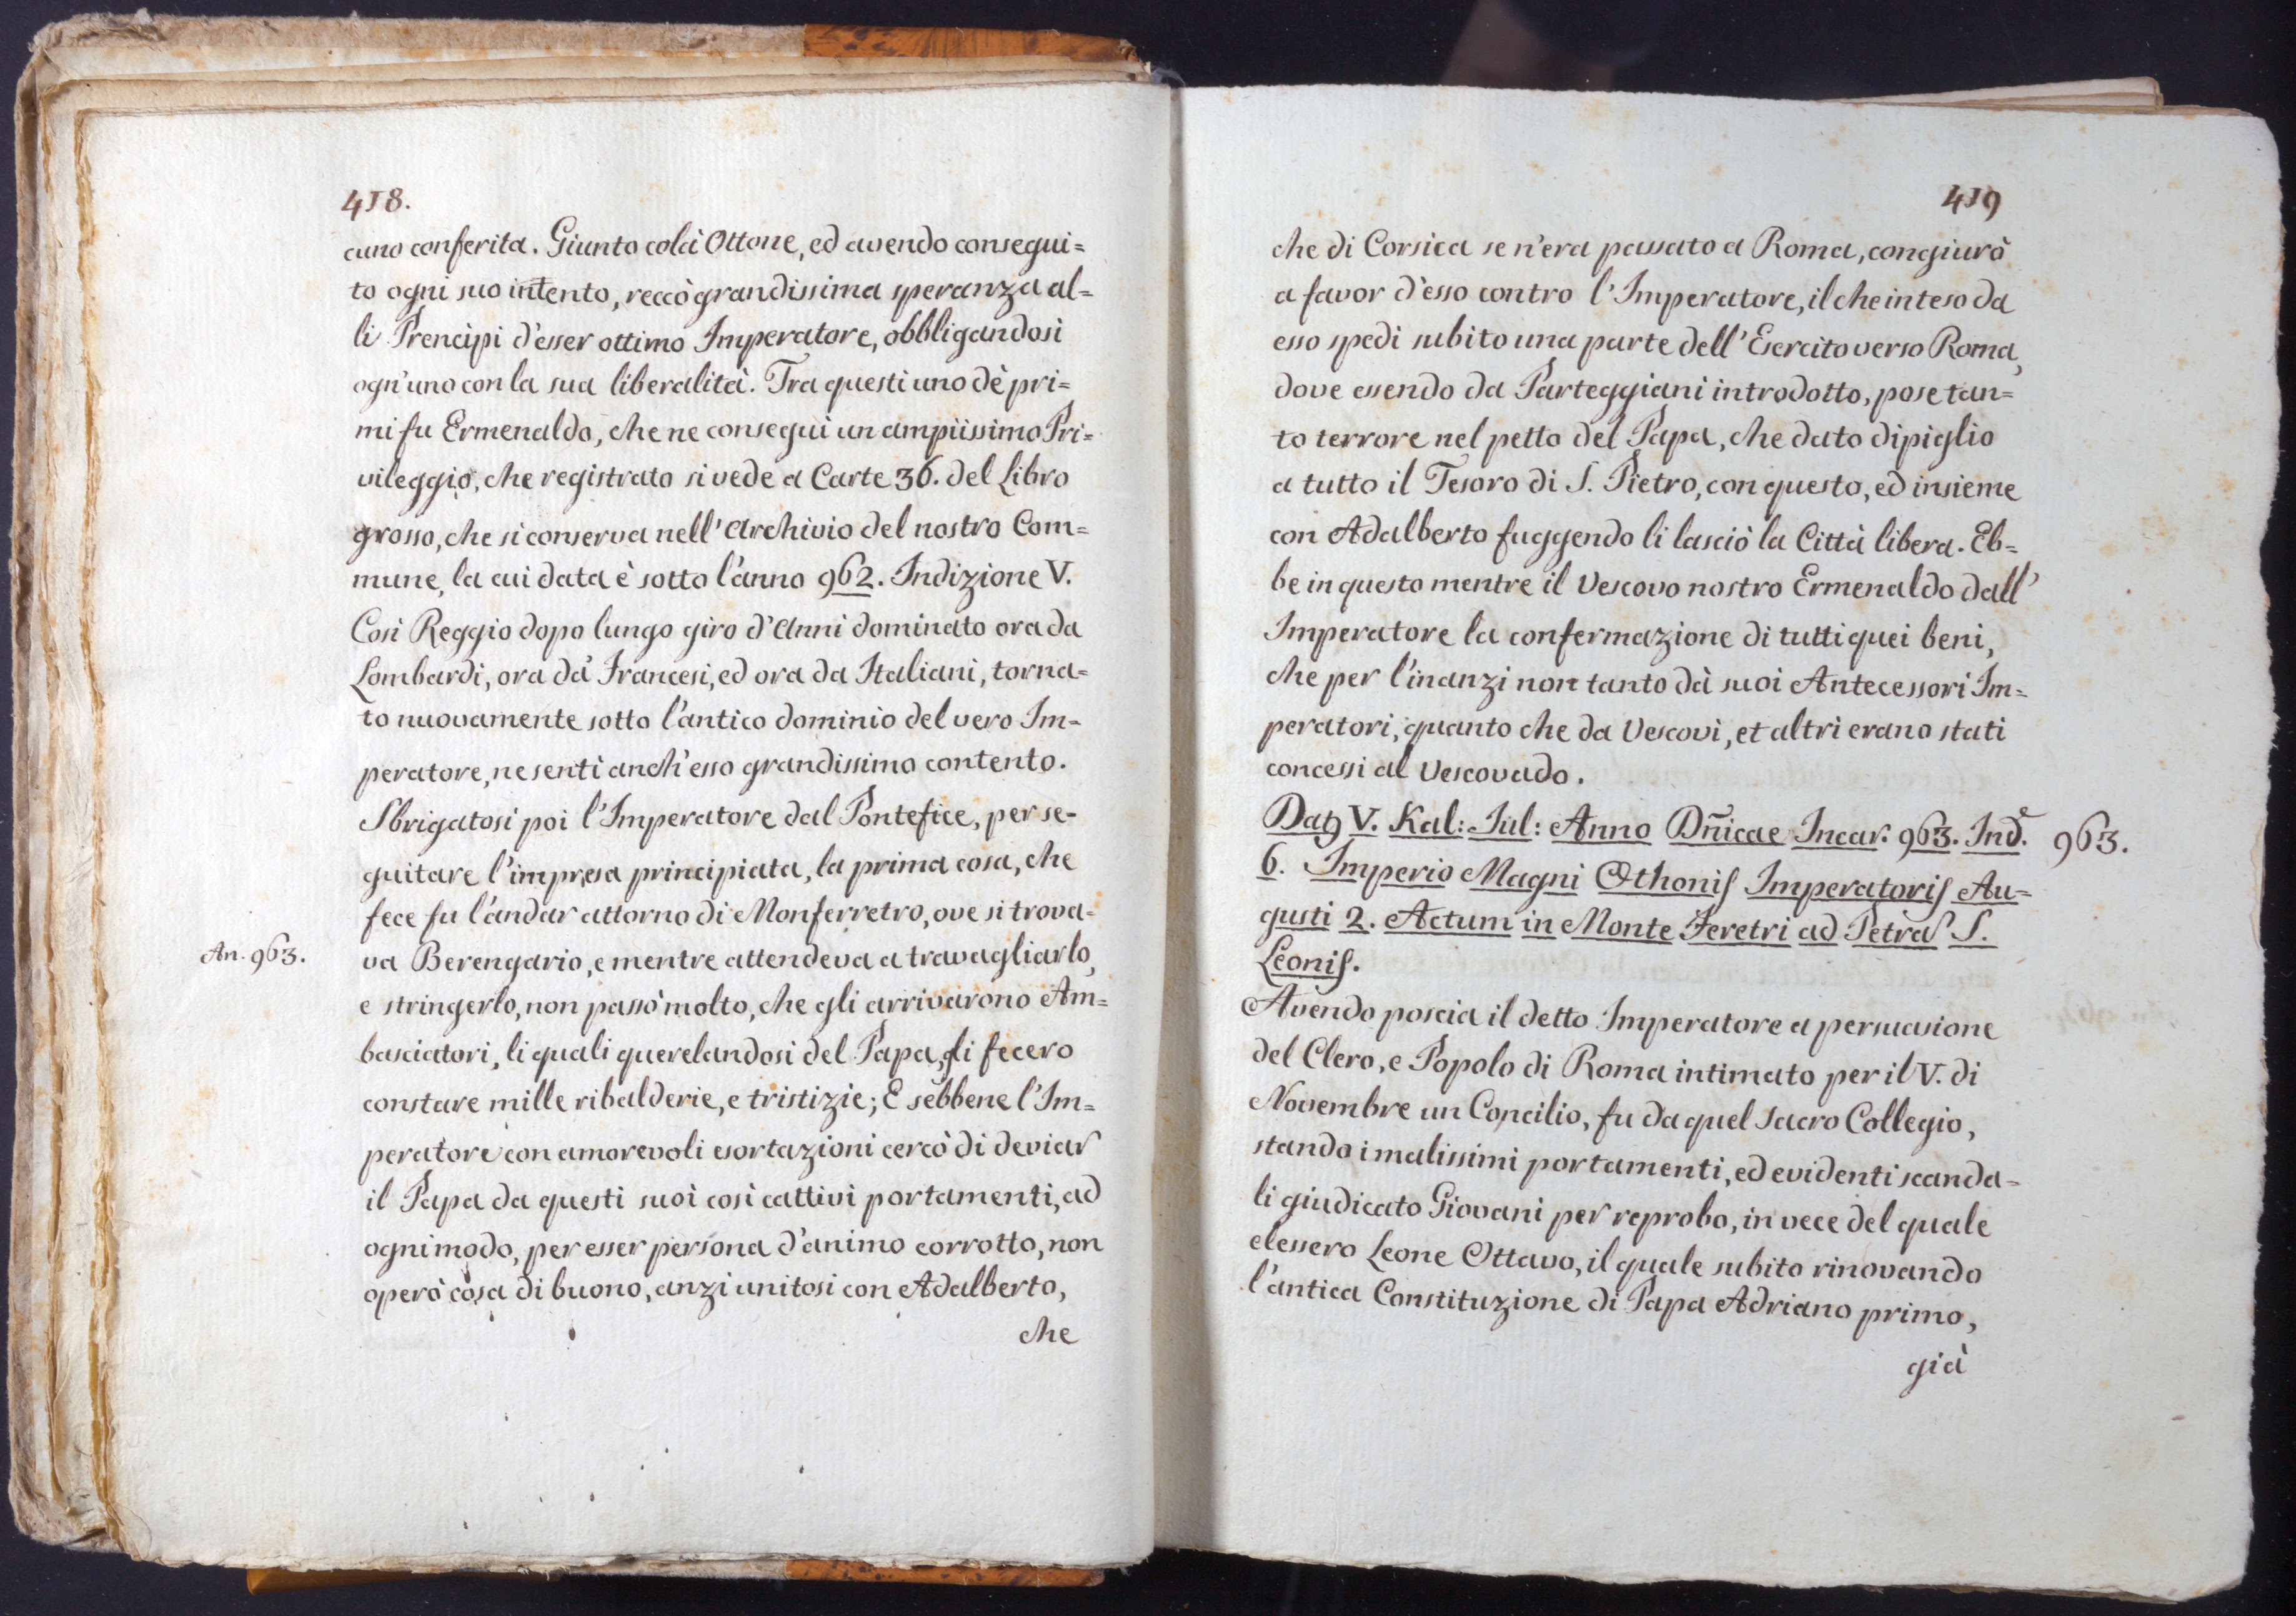 418.
cuno conferita. Giunto colà Ottone, ed avendo consegui=
to ogni suo intento, reccò grandissima speranza al=
li Prencipi d'esser ottimo Imperatore, obbligandosi
ogn'uno con la sua liberalità. Tra questi uno dè pri=
mi fu Ermenaldo, che ne conseguì un ampiissimo Pri=
vileggio, che registrato si vede a Carte 36. del Libro
grosso, che si conserva nell'Archivio del nostro Com=
mune, la cui data è sotto l'anno 962. Indizione V.
Così Reggio dopo lungo giro d'Anni dominato ora da
Lombardi, ora da' Francesi, ed ora da Italiani, torna=
to nuovamente sotto l'antico dominio del vero Im=
peratore, ne sentì anch'esso grandissimo contento.
Sbrigatosi poi l'Imperatore dal Pontefice, per se=
guitare l'impresa principiata, la prima cosa, che
fece fu l'andar attorno di Monferretro, ove si trova=
An. 963.
va Berengario, e mentre attendeva a travagliarlo,
e stringerlo, non passò molto, che gli arrivarono Am=
basciatori, li quali querelandosi del Papa, li fecero
constare mille ribalderie, e tristizie; E sebbene l'Im=
peratore con amorevoli esortazioni cercò di deviar
il Papa da questi suoi così cattivi portamenti, ad
ogni modo, per esser persona d'animo corrotto, non
operò cosa di buono, anzi unitosi con Adalberto,
che
419
che di Corsica se n'era passato a Roma, congiurò
a favor d'esso contro l'Imperatore, il che inteso da
esso spedì subito una parte dell'Esercito verso Roma,
dove essendo da Parteggiani introdotto, pose tan=
to terrore nel petto del Papa, che dato di piglio
a tutto il Tesoro di S. Pietro, con questo, ed insieme
con Adalberto fuggendo li lasciò la Città libera. Eb=
be in questo mentre il Vescovo nostro Ermenaldo dall'
Imperatore la confermazione di tutti quei beni,
che per l'inanzi non tanto dà suoi Antecessori Im=
peratori, quanto che da Vescovi, et altri erano stati
concessi al Vescovado.
Datȝ V. Kal: Jul: Anno Dn̄icae Incar. 963. Indᵉ.
963.
6. Imperio Magni Othonis Imperatoris Au=
gusti 2. Actum in Monte Feretri ad Petras S.
Leonis.
Avendo poscia il detto Imperatore a persuasione
del Clero, e Popolo di Roma intimato per il V. di
Novembre un Concilio, fu da quel Sacro Collegio,
stando i malissimi portamenti, ed evidenti scanda=
li giudicato Giovani per reprobo, in vece del quale
elessero Leone Ottavo, il quale subito rinovando
l'antica Constituzione di Papa Adriano primo,
già